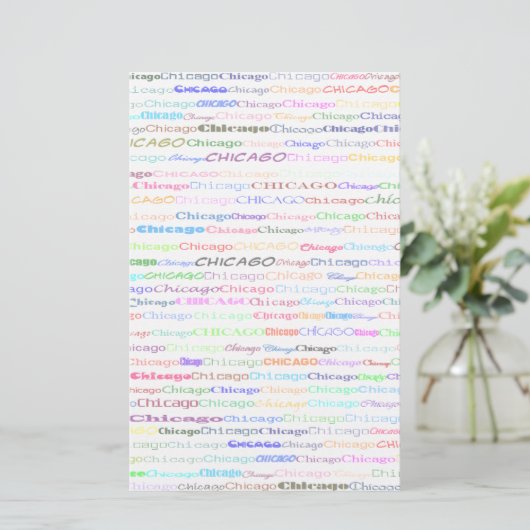 Chicago Chicago Chicago Chicago CHICAGO Chicago
Chicago CHICAGO Chicago Chicago CHICAGO
Chicago CHICAGO Chicago Chicago Chicago
Chicago Chicago Chicago Chicago Chicago Chicago
Chicago Chicago Chicago Chicago Chicago
CHICAGO Chicago Chicago Chicago Chicago
Chicago CHICAGO Chicago CHICAGO
Chicago Chicago Chicago Chicago Chicago
Chicago Chicago CHICAGO Chicago Chicago
CHICAGO Chicago CHICAGO CHICAGO Chicago
Chicago Chicago Chicago Chicago Chicago
Chicago Chicago Chicago Chicago
Chicago Chicago CHICAGO Chicago Chicago
Chicago CHICAGO Chicago Chicago
CHICAGO Chicago Chicago Chicago Chicago
Chicago Chicago Chicago Chicago Chicago
Chicago CHICAGO Chicago Chicago Chicago
Chicago Chicago Chicago Chicago Chicago
Chicago CHICAGO Chicago CHICAGO Chicago
Chicago Chicago Chicago Chicago Chicago
Chicago Chicago CHICAGO Chicago Chicago
Chicago Chicago Chicago Chicago Chicago
Chicago Chicago Chicago Chicago Chicago
Chicago Chicago Chicago Chicago
Chicago Chicago CHICAGO Chicago
Chicago Chicago Chicago Chicago Chicago
Chicago CHICAGO Chicago Chicago CHICAGO
Chicago CHICAGO Chicago Chicago Chicago
Chicago Chicago Chicago Chicago Chicago
CHICAGO Chicago Chicago Chicago Chicago